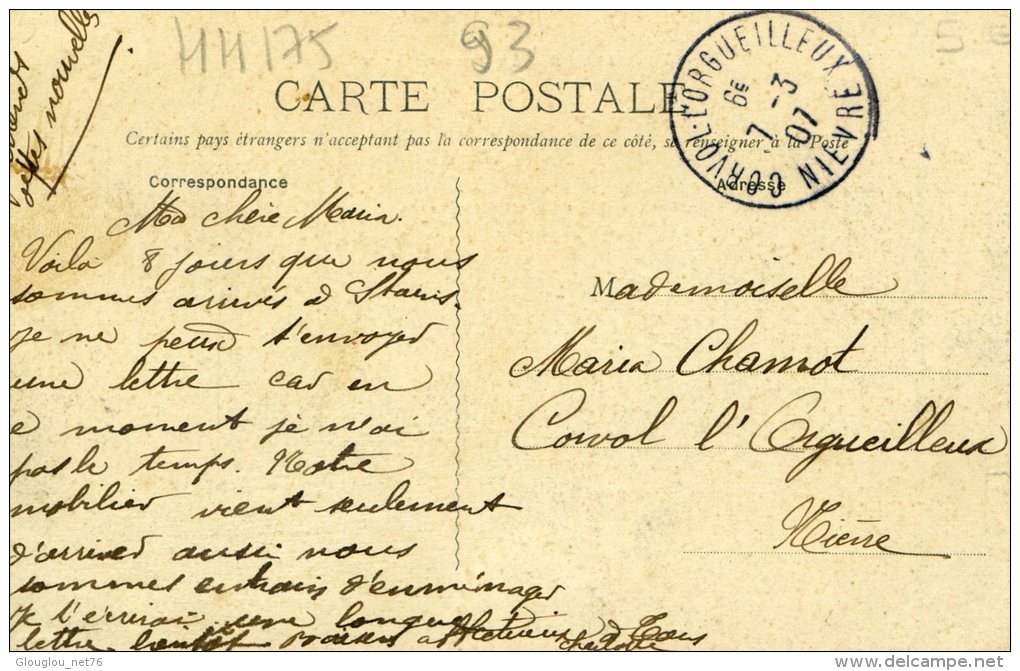 HH175
93
5
CARTE POSTALE
Certains pays étrangers n'acceptant pas la correspondance de ce côté, se renseigner à la Poste
CORVOL-L'ORGUEILLEUX
6E
7 -3
07
NIEVRE
Correspondance
Adresse
nouvelles
Ma chère Maria.
Voila 8 jours que nous
sommes arrivés a Stains.
Je ne peux t'envoyer
une lettre car en
e moment je n'ai
pas le temps. Notre
mobilier vient seulement
d'arriver aussi nous
sommes entrain d'enménager
Je t'écrirai une longue
lettre bientôt affectueux a Tous
Mademoiselle
Maria Chamot
Corvol l'Orgueilleux
Nièvre
Glouglou_net76
delcampe.net